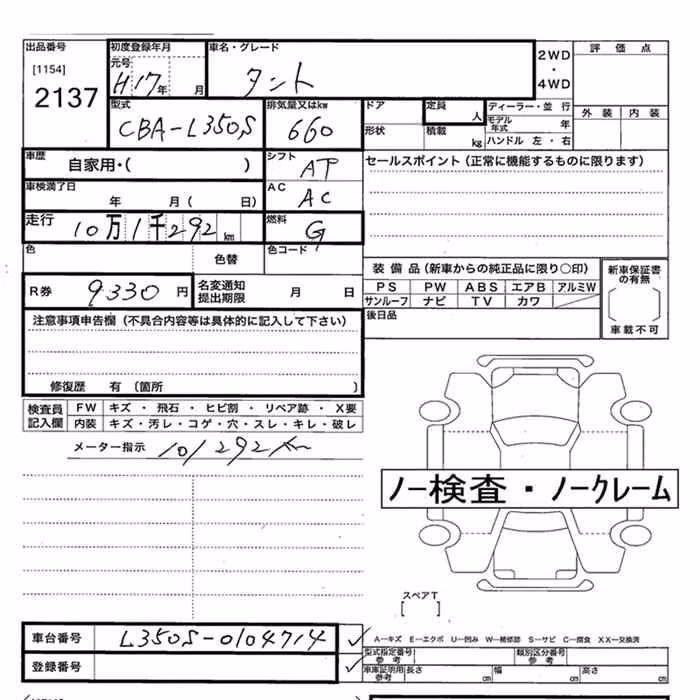 出品番号 初度登録年月 車名・グレード 2WD・4WD 評価点
[1154] 元号
2137 H17年 月 タント
型式 排気量又はkw ドア 定員 人 ディーラー・並行 外装 内装
CBA-L350S 660 形状 積載 kg モデル年式 年
ハンドル 左・右
車歴 自家用・( ) シフト AT セールスポイント(正常に機能するものに限ります)
車検満了日 年 月( 日) AC AC
走行 10万1千292km 燃料 G
色 色替 色コード 装備品(新車からの純正品に限り○印) 新車保証書の有無
R券 9330円 名変通知提出期限 月 日 PS PW ABS エアB アルミW
サンルーフ ナビ TV カワ
車載不可
注意事項申告欄(不具合内容等は具体的に記入して下さい) 後日品
修復歴 有〔箇所 〕
検査員記入欄 FW キズ・飛石・ヒビ割・リペア跡・X要
内装 キズ・汚レ・コゲ・穴・スレ・キレ・破レ
メーター指示 101292km
ノー検査・ノークレーム
スペアT
[ ]
車台番号 L350S-0104714 A−キズ E−エクボ U−凹み W−補修跡 S−サビ C−腐食 XX−交換済
登録番号 型式指定番号 参考 類別区分番号 参考
車庫証明用 参考 長さ cm 幅 cm 高さ cm